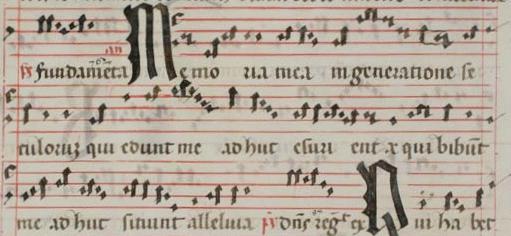 ps fundam̄eta an Memoria mea in generatione se
culoruȝ qui edunt me adhuc esuri ent & qui bibūt
me adhuc sitiunt alleluia ps dn̄s reg̃ ex Qui habet